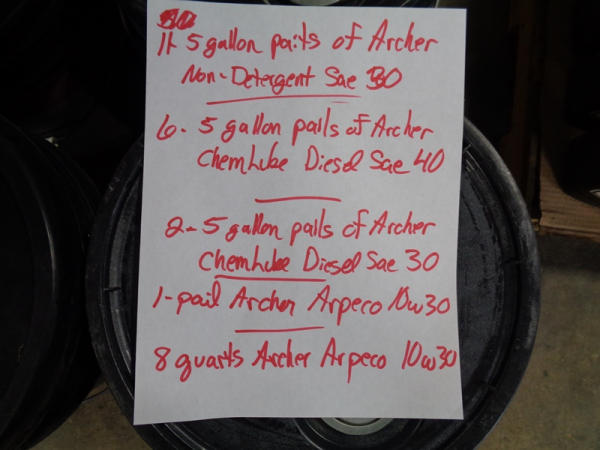 11- 5 gallon pails of Archer
Non-Detergent Sae 30
6- 5 gallon pails of Archer
Chemlube Diesel Sae 40
2- 5 gallon pails of Archer
Chemlube Diesel Sae 30
1-pail Archer Arpeco 10w30
8 quarts Archer Arpeco 10w30